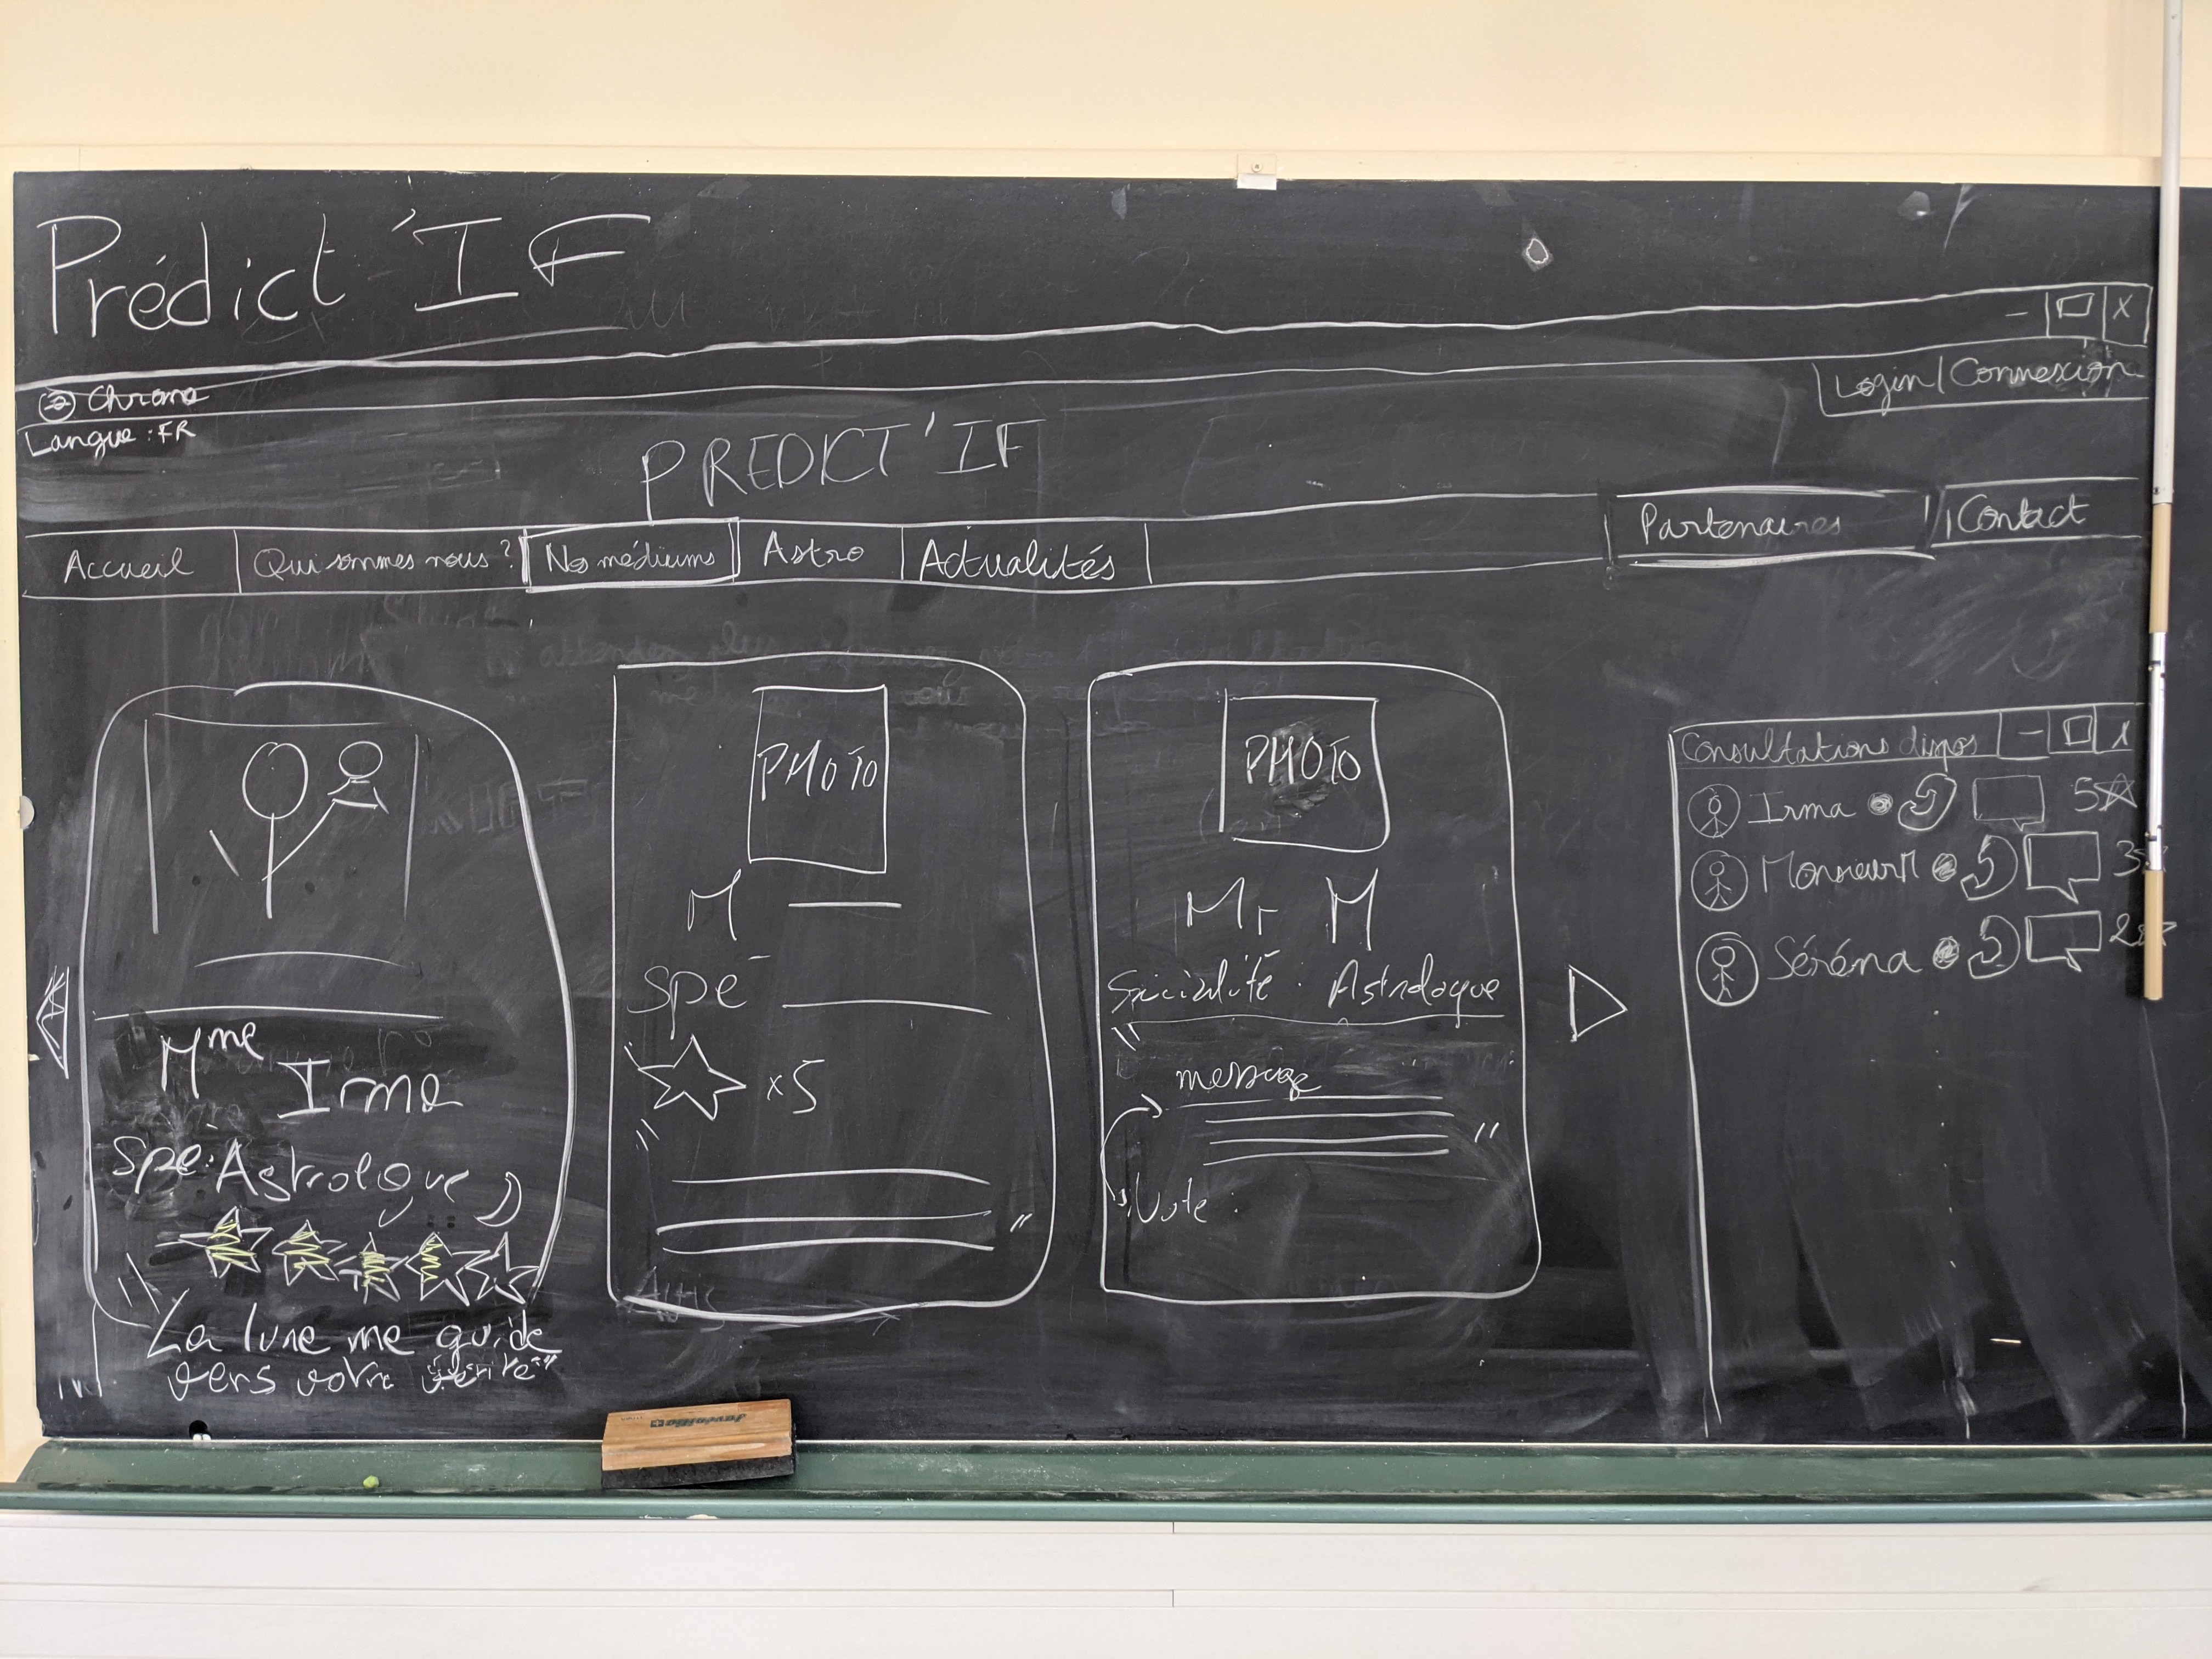 Prédict'IF
x
Chrome
Login | Connexion
Langue : FR
PREDICT'IF
Accueil
Qui sommes nous ?
Nos médiums
Astro
Actualités
Partenaires
Contact
Mme
Irma
Spé: Astrologue
"La lune me guide
vers votre vérité"
PHOTO
M
Spé
x5
"
"
PHOTO
Mr M
Spécialité : Astrologue
"
message
"
Vote :
Consultations dispos
x
Irma 5
Monsieur M 3
Séréna 2